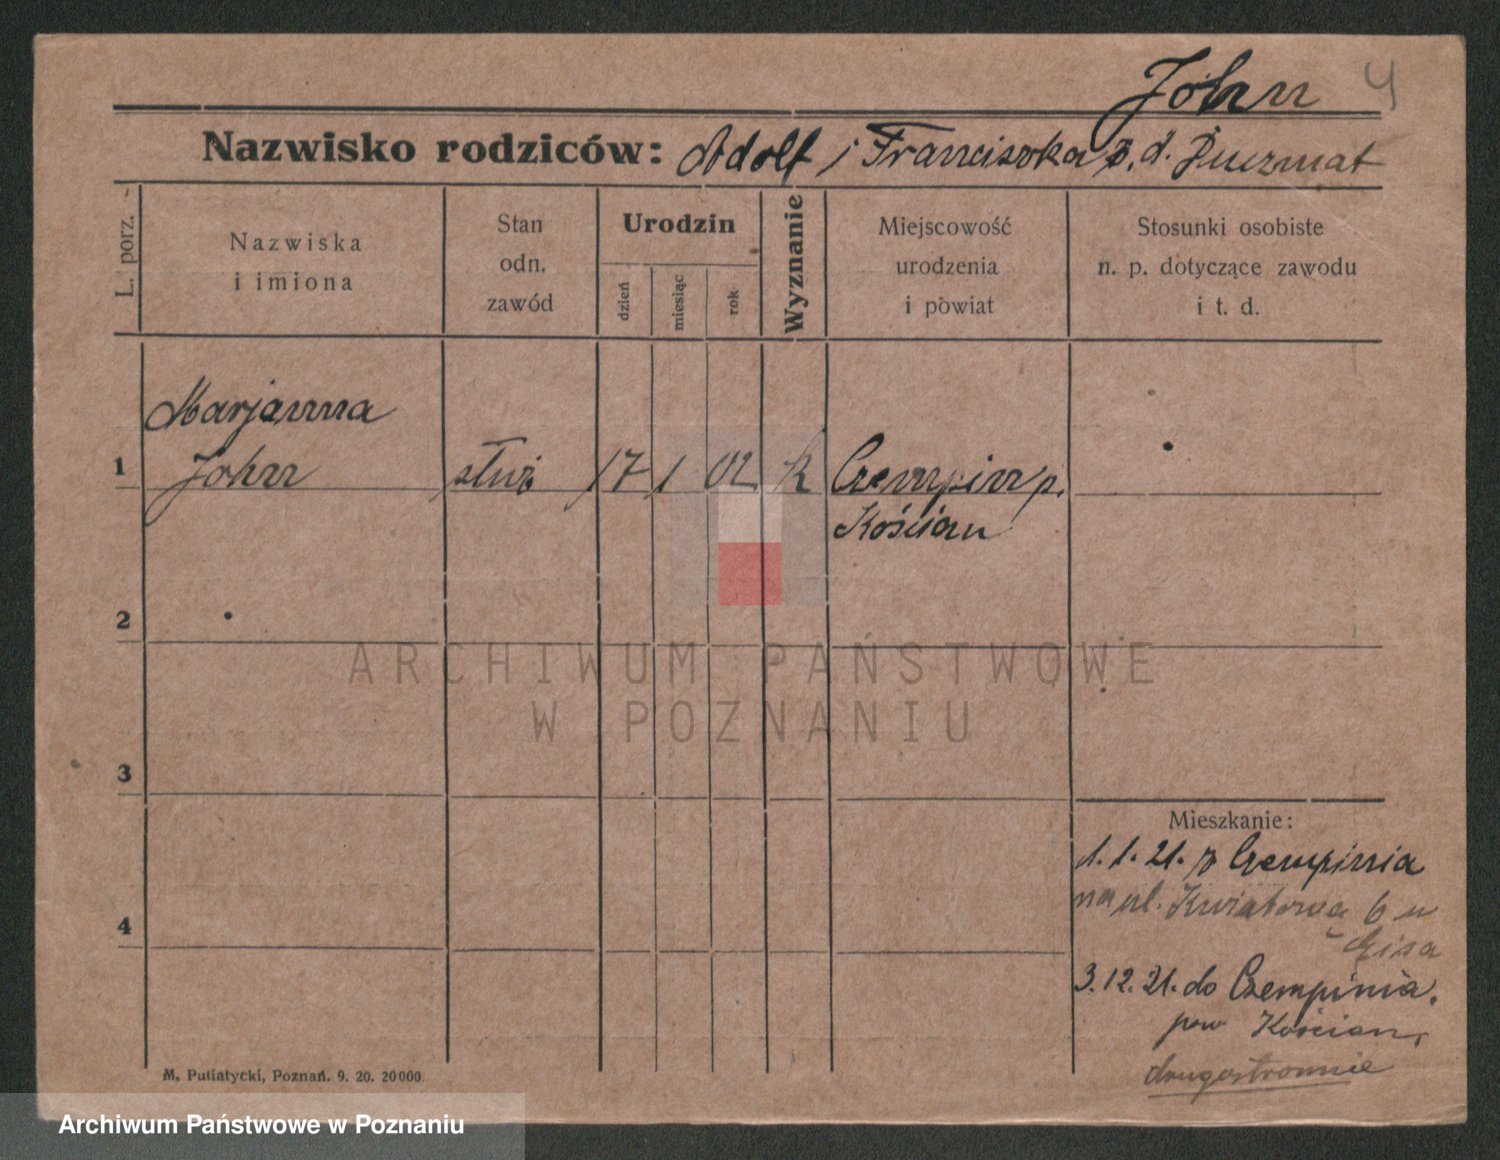 John 4
Nazwisko rodziców: Adolf i Franciszka z. d.
L. porz.
Nazwiska
i imiona
Stan
odn.
zawód
Urodzin
dzień
miesiąc
rok
Wyznanie
Miejscowość
urodzenia
i powiat
Stosunki osobiste
n. p. dotyczące zawodu
i t. d.
Marjanna
1 John służ 17 1 02 k Czempin p.
Kościan
2
ARCHIWUM PAŃSTWOWE
W POZNANIU
3
Mieszkanie:
1.1.21. z Czempinia
na ul. Kwiatową 6 u
3.12.21. do Czempinia.
pow Kościan,
drugostronnie
4
M. Putiatycki, Poznań. 9. 20. 20000.
Archiwum Państwowe w Poznaniu